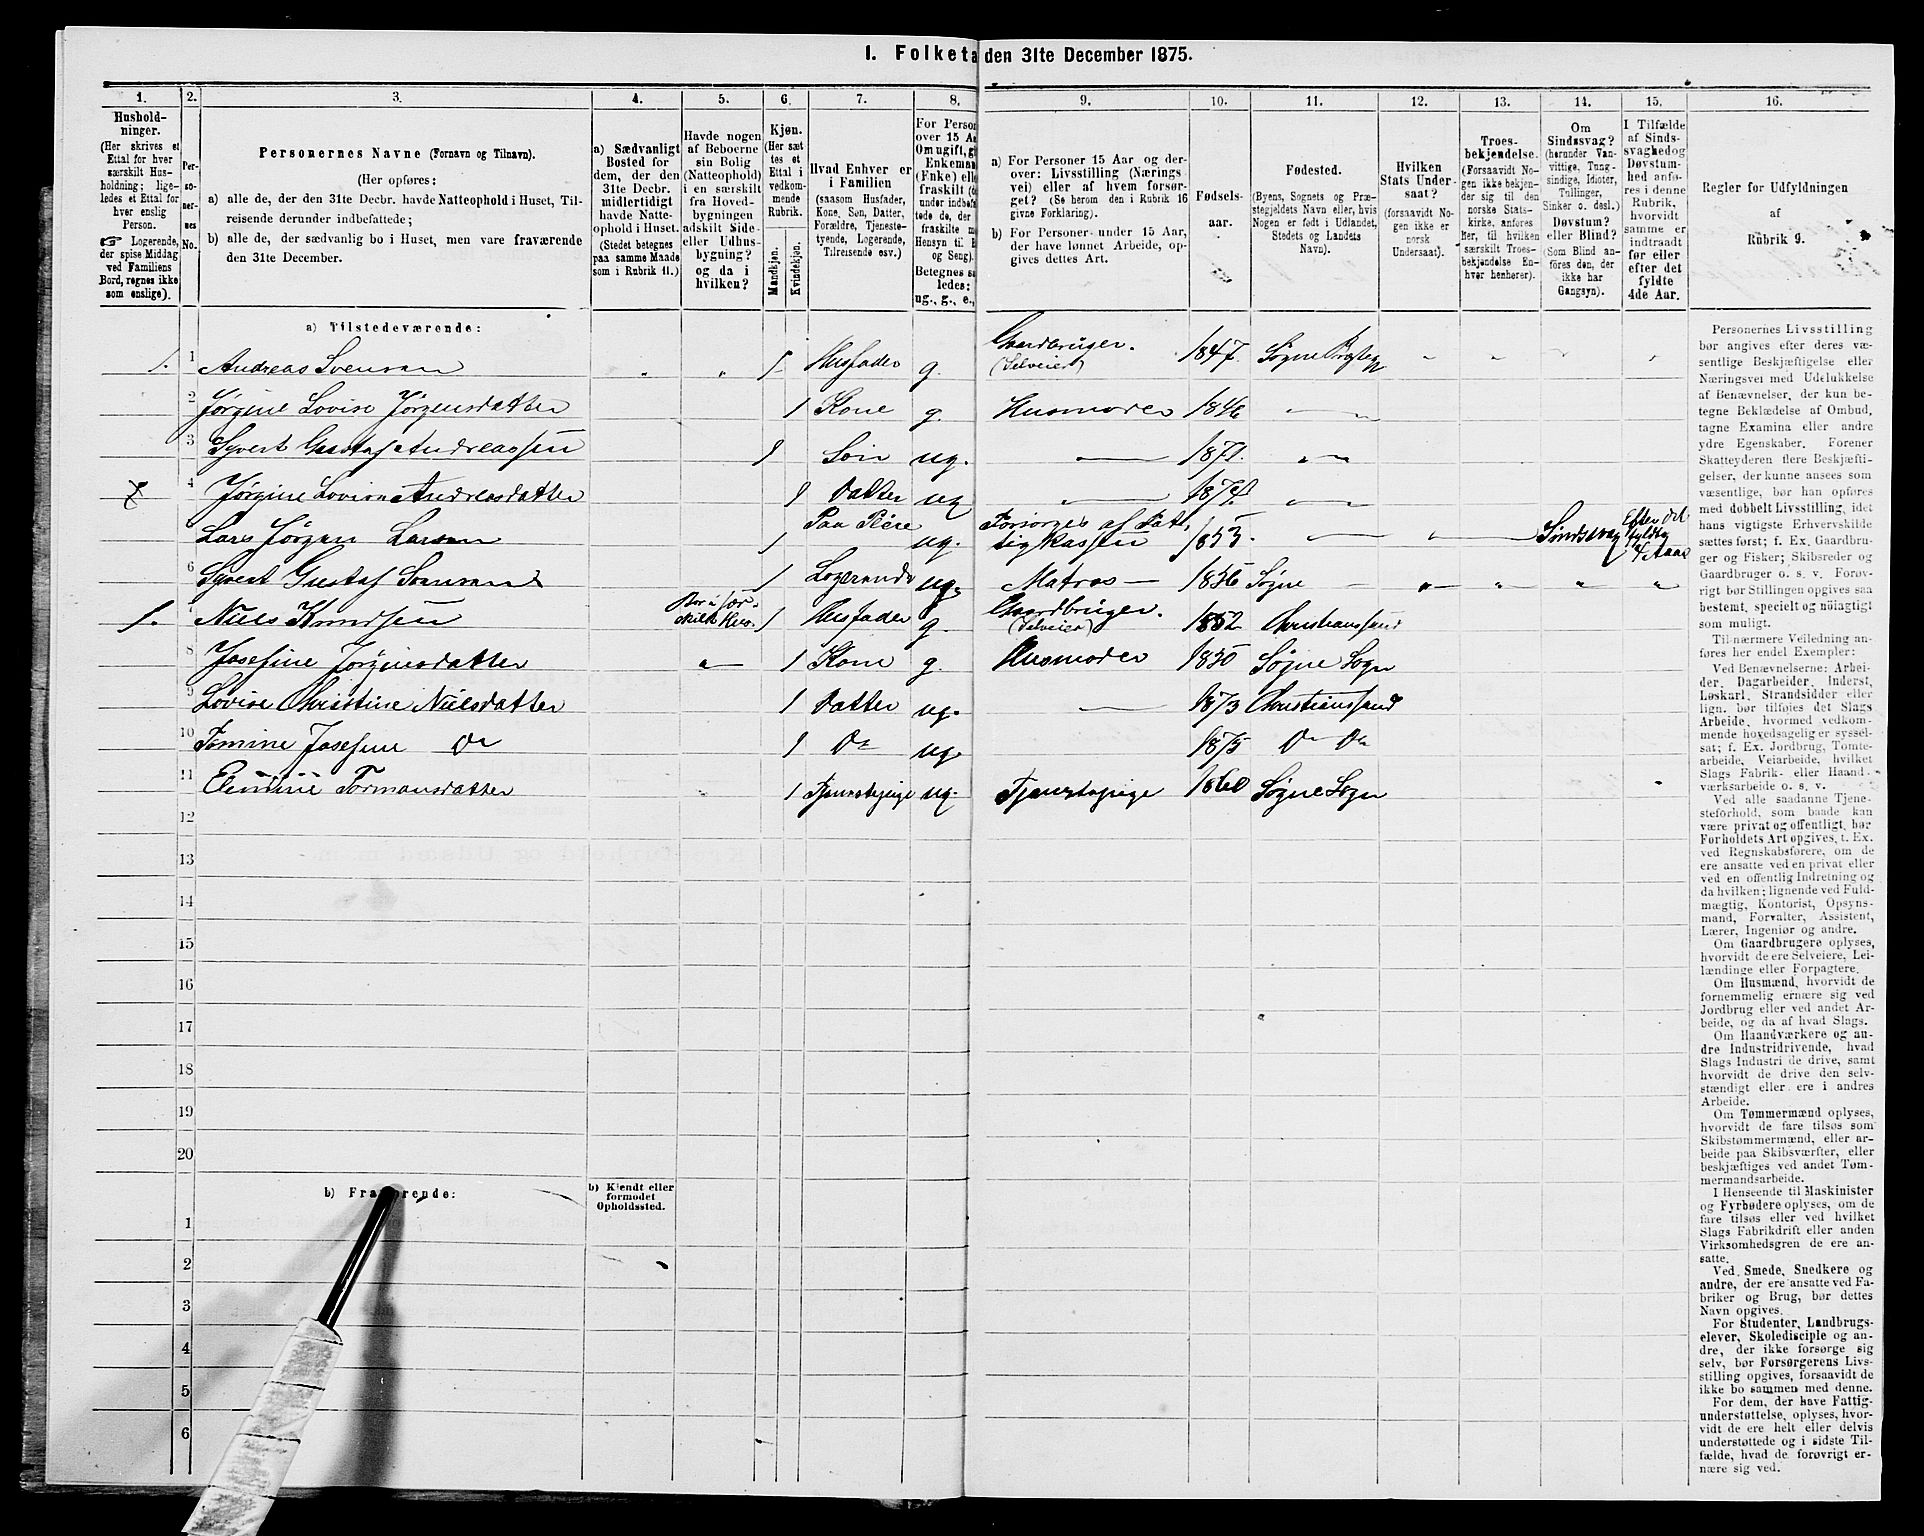 I. Folketa den 31te December 1875.
1.
Hushold-
ninger.
(Her skrives et
Ettal for hver
særskilt Hus-
holdning; lige-
ledes et Ettal for
hver enslig
Person.
☞ Logerende,
der spise Middag
ved Familiens
Bord, regnes ikke
som enslige).
2.
Per-
so-
ner-
nes
No.
3.
Personernes Navne (Fornavn og Tilnavn).
(Her opføres:
a) alle de, der den 31te Decbr. havde Natteophold i Huset, Til-
reisende derunder indbefattede;
b) alle de, der sædvanlig bo i Huset, men vare fraværende
den 31te December.
4.
a) Sædvanligt
Bosted for
dem, der den
31te Decbr.
midlertidigt
havde Natte-
ophold i Huset.
(Stedet betegnes
paa samme Maade
som i Rubrik 11.)
5.
Havde nogen
af Beboerne
sin Bolig
(Natteophold)
i en særskilt
fra Hoved-
bygningen
adskilt Side-
eller Udhus-
bygning?
og da i
hvilken?
6.
Kjøn.
(Her sæt
tes et
Ettal i
vedkom-
mende
Rubrik.
Mandkjøn.
Kvindekjøn.
7.
Hvad Enhver er
i Familien
(saasom Husfader,
Kone, Søn, Datter,
Forældre, Tjeneste-
tyende, Logerende,
Tilreisende osv.)
8.
For Person
over 15 Aa
Om ugift, gi
Enkeman
(Enke) elle
fraskilt
under indbef
tede de, der
fraskilte
Hensyn til B
og Seng).
Betegnes sa
ledes:
ug., g., e.,
9.
a) For Personer 15 Aar og der-
over: Livsstilling (Nærings-
vei) eller af hvem forsør-
get? (Se herom den i Rubrik 16
givne Forklaring).
b) For Personer under 15 Aar,
der have lønnet Arbeide, op-
gives dettes Art.
10.
Fødsels-
aar.
11.
Fødested.
(Byens, Sognets og Præ-
stegjeldets Navn eller, hvis
Nogen er født i Udlandet,
Stedets og Landets
Navn).
12.
Hvilken
Stats Under-
saat?
(forsaavidt No-
gen ikke er
norsk
Undersaat).
13.
Troes-
bekjendelse.
(Forsaavidt No-
gen ikke bekjen-
der sig til den
norske Stats-
kirke, anføres
her, til hvilken
særskilt Troes-
bekjendelse En-
hver henhører).
14.
Om
Sindssvag?
(herunder Van-
vittige, Tung-
sindige, Idioter,
Tullinger,
Sinker o. desl.)
Døvstum?
eller Blind?
(Som Blind an-
føres den, der
ikke har
Gangsyn).
15.
I Tilfælde
af Sinds-
svaghed og
Døvstum-
hed anfø-
res i denne
Rubrik,
hvorvidt
samme er
indtraadt
før eller
efter det
fyldte
4de Aar.
16.
Regler for Udfyldningen
af
Rubrik 9.
a) Tilstedeværende:
1. 1 Andreas Svensen „ „ 1 Husfader g. Gaardbruger. (Selveier) 1847. Søgne Præstegj „ „ „ „
2 Jørgine Lovise Jørgensdatter 1 Kone g. Husmoder 1846 „ — „
3 Syvert Gustaf Andreassen 1 Søn ug. „ 1871. „ — „
4 Jørgine Lovise Andreasdatter 1 Datter ug „ 1874. „ — „
Lars Jørgen Larsen 1 Paa Pleie ug. Forsørges af Fat, tigkassen 1853. „ — „ „ — „ Sindssvag Efter det fyldte 4 Aar
6 Syvert Gustaf Svensen 1 Logerende ug. Matros — 1856 Søgne — „ „ „ „
1. 7 Niels Knudsen Bor i sær- skilt Hus. 1 Husfader g. Gaardbruger. (Selveier) 1852 Christianssand
8 Josefine Jørginsdatter „ 1 Kone g. Husmoder 1850 Søgne Sogn
9 Lovise Christine Nielsdatter 1 Datter ug. „ 1873 Christianssand
10 Tomine Josefine Do 1 Do ug. 1875 Do Do
11 Elentine Tormansdatter 1 Tjenestepige ug. Tjenstepige 1860 Søgne Sogn
12
13
14
15
16
17
18
19
20
b) Fra erende:
b) Kjendt eller
formodet
Opholdssted.
1
2
3
4
5
6
Personernes Livsstilling
bør angives efter deres væ-
sentlige Beskjæftigelse eller
Næringsvei med Udelukkelse
af Benævnelser, der kun be-
tegne Beklædelse af Ombud,
tagne Examina eller andre
ydre Egenskaber. Forener
Skatteyderen flere Beskjæfti-
gelser, der kunne ansees som
væsentlige, bør han opføres
med dobbelt Livsstilling, idet
hans vigtigste Erhvervskilde
sættes først; f. Ex. Gaardbru-
ger og Fisker; Skibsreder og
Gaardbruger o. s. v. Forøv-
rigt bør Stillingen opgives saa
bestemt, specielt og nöiagtigt
som muligt.
Til nærmere Veiledning an-
føres her endel Exempler:
Ved Benævnelserne: Arbei-
der, Dagarbeider, Inderst,
Løskarl, Strandsidder eller
lign. bør tilføies det Slags
Arbeide, hvormed vedkom-
mende hovedsagelig er syssel-
sat; f. Ex. Jordbrug, Tomte-
arbeide, Veiarbeide, hvilket
Slags Fabrik- eller Haand-
værksarbeide o. s. v.
Ved alle saadanne Tjene-
steforhold, som baade kan
være privat og offentligt, bør
Forholdets Art opgives, t. Ex.
ved Regnskabsførere, om de
ere ansatte ved en privat eller
ved en offentlig Indretning og
da hvilken; lignende ved Fuld-
mægtig, Kontorist, Opsyns-
mand, Forvalter, Assistent,
Lærer, Ingeniør og andre.
Om Gaardbrugere oplyses,
hvorvidt de ere Selveiere, Lei-
lændinge eller Forpagtere.
Om Husmænd, hvorvidt de
fornemmelig ernære sig ved
Jordbrug eller ved andet Ar-
beide, og da af hvad Slags.
Om Haandværkere og an-
dre Industridrivende, hvad
Slags Industri de drive, samt
hvorvidt de drive den selv-
stændigt eller ere i andres
Arbeide.
Om Tømmermænd oplyses,
hvorvidt de fare tilsøs som
Skibstømmermænd, eller ar-
beide paa Skibsværfter, eller
beskjæftiges ved andet Tøm-
mermandsarbeide.
I Henseende til Maskinister
og Fyrbødere oplyses, om de
fare tilsøs eller ved hvilket
Slags Fabrikdrift eller anden
Virksomhedsgren de ere an-
satte.
Ved Smede, Snedkere og
andre, der ere ansatte ved Fa-
briker og Brug, bør dettes
Navn opgives.
For Studenter, Landbrugs-
elever, Skoledisciple og an-
dre, der ikke forsørge sig
selv, bør Forsørgerens Livs-
stilling opgives, forsaavidt de
ikke bo sammen med denne.
For dem, der have Fattig-
understøttelse, oplyses, hvor-
vidt de ere helt eller delvis
understøttede og i sidste Til-
fælde, hvad de forøvrigt er-
nære sig ved.